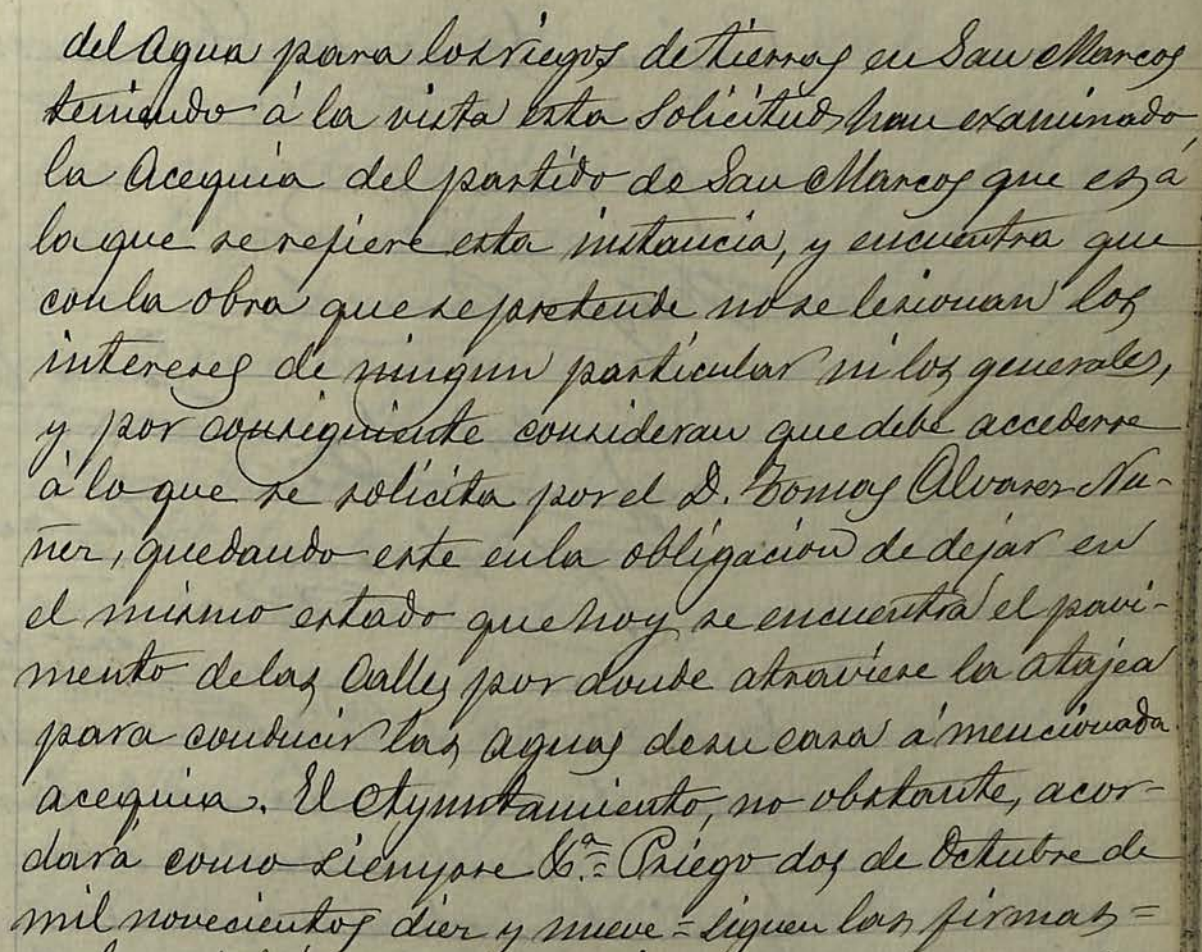 del Agua para los riegos de tierras en San Marcos
teniendo á la vista esta Solicitud han examinado
la Acequia del partido de San Marcos que es á
la que se refiere esta instancia, y encuentra que
con la obra que se pretende no se lesionan los
intereses de ningun particular ni los generales,
y por consiguiente consideran que debe accederse
á lo que se solicita por el D. Tomas Alvarez Nu-
ñez, quedando este en la obligacion de dejar en
el mismo estado que hoy se encuentra el pavi-
mento de las Calles por donde atraviese la atajea
para conducir las aguas de su casa á mencionada
acequia. El Ayuntamiento, no obstante, acor-
dará como siempre = Priego dos de Octubre de
mil novecientos diez y nueve = Siguen las firmas =